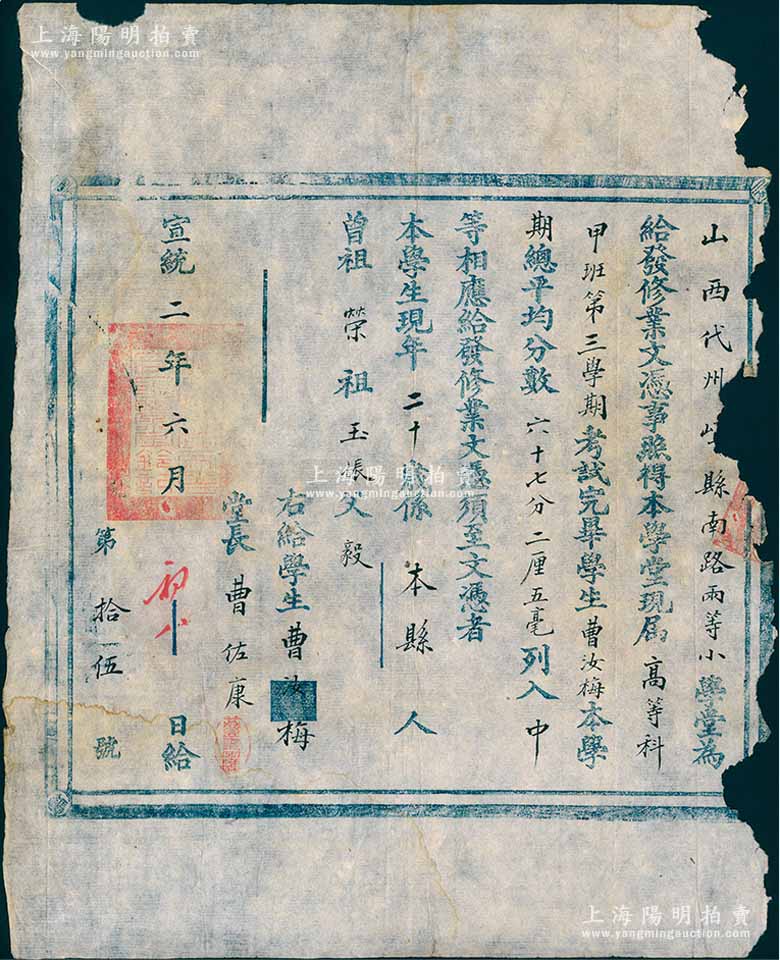 上海陽明拍賣
www.yangmingauction.com
山西代州崞縣南路兩等小學堂為
給發修業文憑事照得本學堂現屆高等科
甲班第三學期考試完畢學生曹汝梅本學
期總平均分數六十七分二厘五毫列入中
等相應給發修業文憑須至文憑者
本學生現年二十歲係本縣人
曾祖榮祖玉振父毅
右給學生曹汝梅
堂長曹佐康
宣統二年六月初八日給
第拾伍號
上海陽明拍賣
www.yangmingauction.com
上海陽明拍賣
www.yangmingauction.com